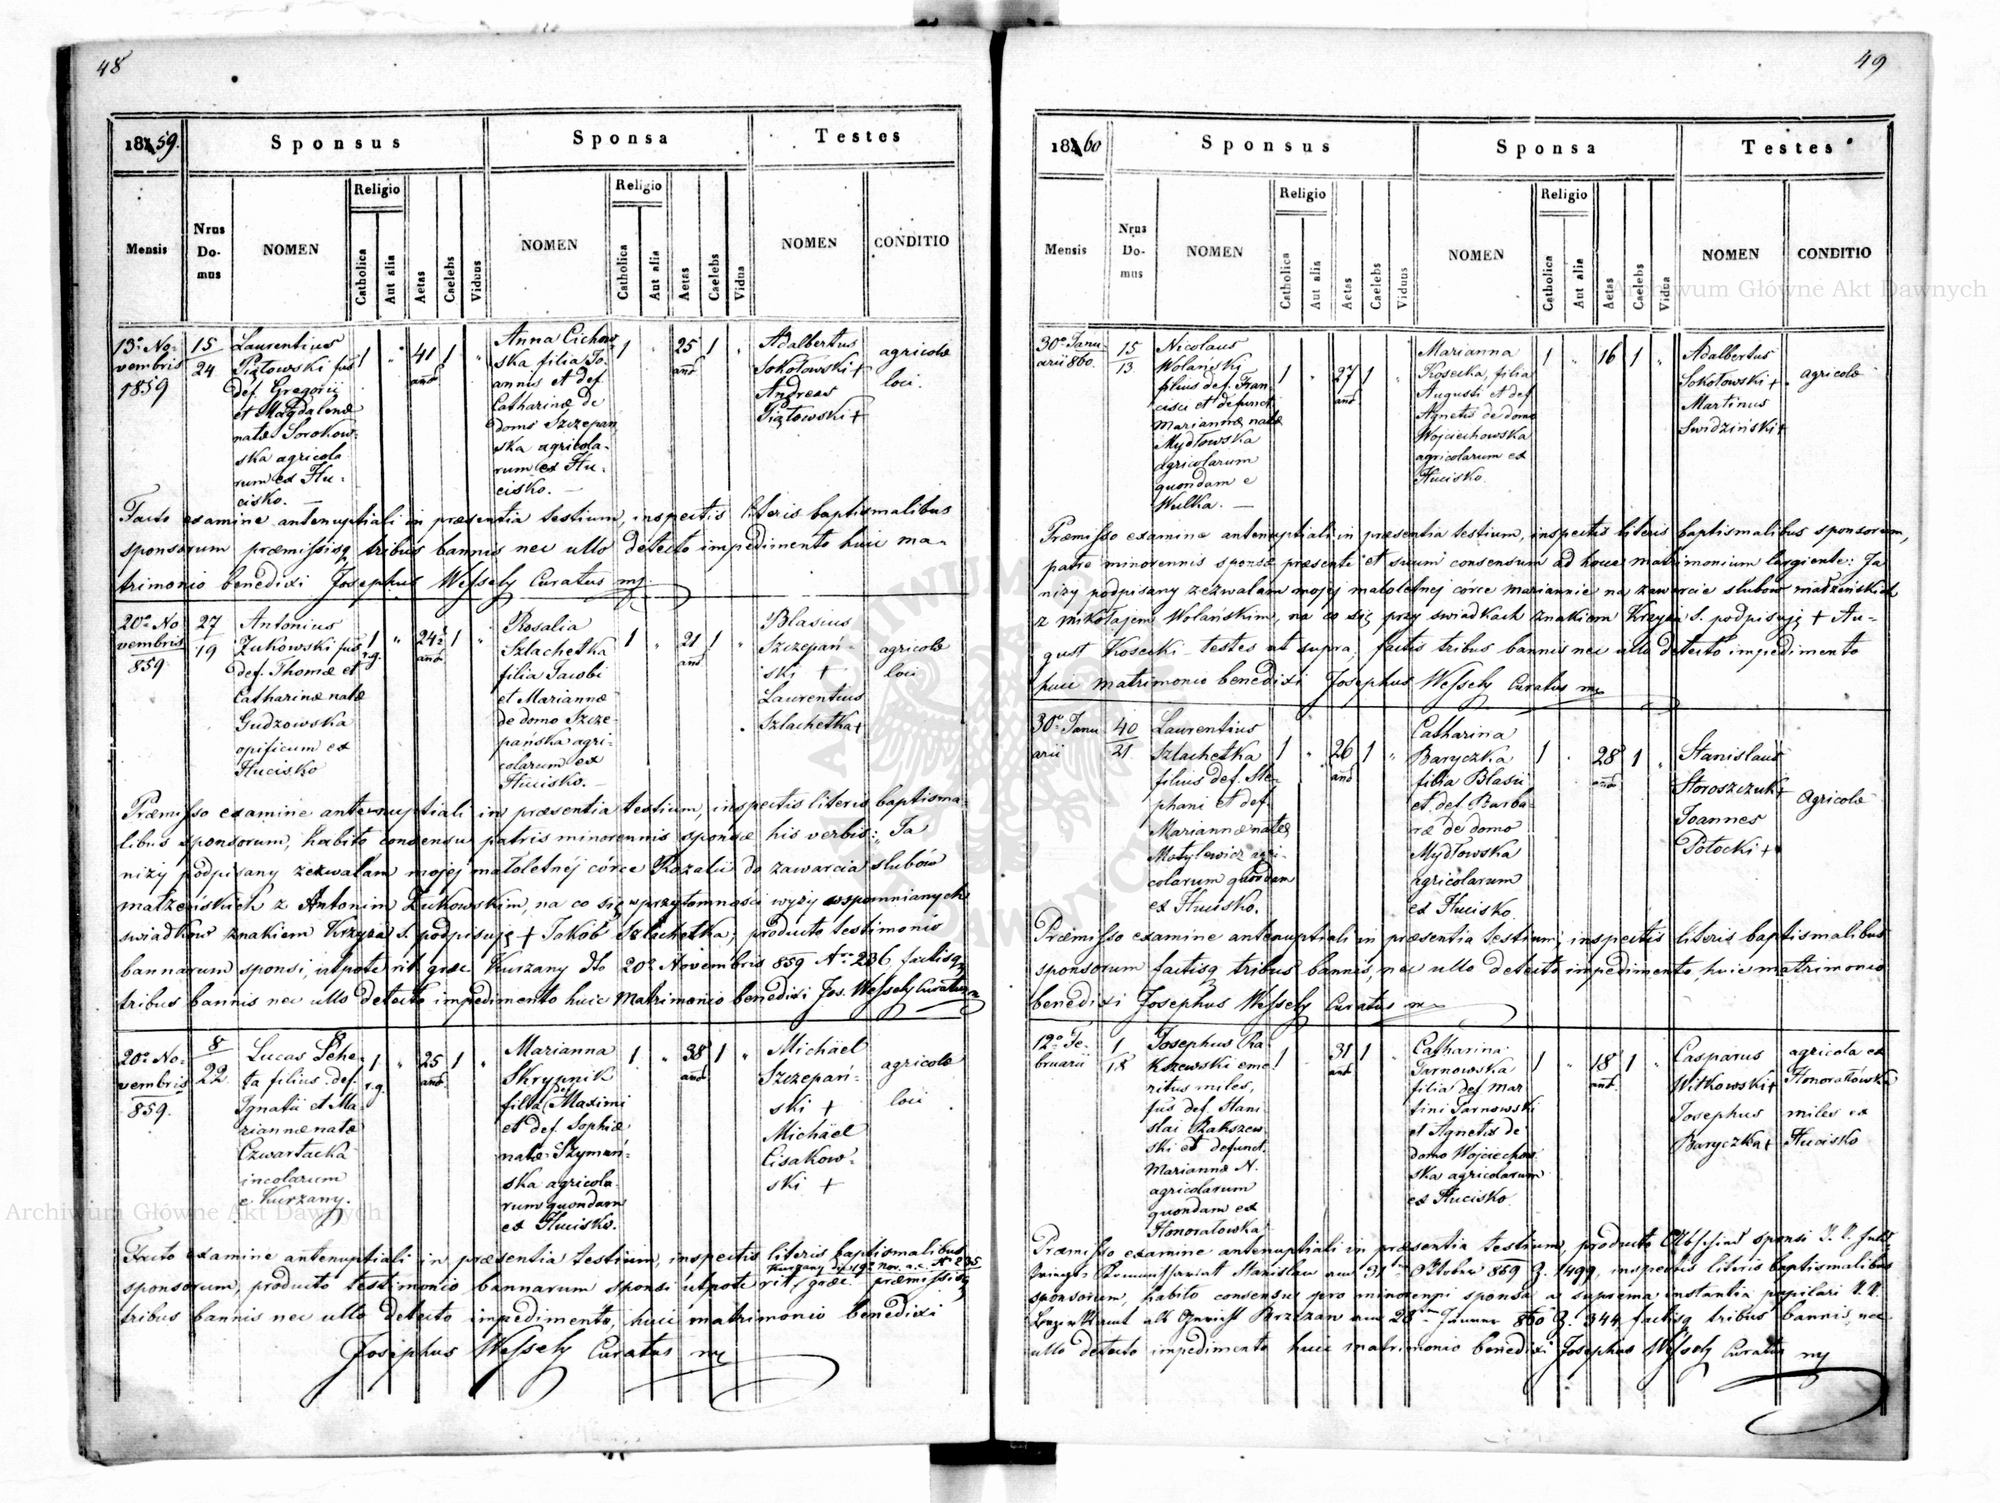 48
1859.
Sponsus
Sponsa
Testes
Mensis
Nrus Do-mus
NOMEN
Religio
Catholica
Aut alia
Aetas
Caelebs
Viduus
NOMEN
Religio
Catholica
Aut alia
Aetas
Caelebs
Vidua
NOMEN
CONDITIO
13º No-
vembris
1859
15
24
Laurentius
Piątowski fus
def. Gregorii
et Magdalenæ
natæ Sorokow-
ska agricola
rum ex Hu-
cisko. —
1
"
41
annor
1
"
Anna Cichow-
ska filia Jo-
annis et def.
Catharinæ de
domo Szczepan
ska agricola-
rum ex Hu-
cisko. —
1
"
25
1
"
Adalbertus
Sokołowski +
Andreas
Piątowski +
agricolæ
loci.
Facto examine antenuptiali in præsentia testium, inspectis literis baptismalibus
sponsorum præmissisq tribus bannis nec ullo detecto impedimento huic ma-
trimonio benedixi Josephus Wessely Curatus mp
20º No
vembris
859
27
19
Antonius
Żukowski fus
def. Thomæ et
Catharinæ natæ
Gudzowska
opificum ex
Hucisko
1
r.g.
"
24
1
"
Rosalia
Szlachetka
filia Jacobi
et Mariannæ
de domo Szcze-
pańska agri-
colarum ex
Hucisko. —
1
"
21
1
"
Blasius
Szczepań-
ski +
Laurentius
Szlachetka +
agricolæ
loci
Præmisso examine antenuptiali in præsentia testium, inspectis literis baptisma-
libus sponsorum, habito consensu patris minorennis sponsæ his verbis: „Ja
niży podpisany zezwalám mojéj małoletnéj córce Rozalii do zawarcia slubów
małzeńskich z Antonim Żukowskim, na co się w przytomności wyży wspomnianych
swiadków znakiem Krzyża s. podpisuję + Jakób Szlachetka; producto testimonio
bannarum sponsi, utpote rit. græc. Kurzany dto 20º Novembris 859 Nro 236 factisq
tribus bannis nec ullo detecto impedimento huic Matrimonio benedixi Jos. Wessely Curatus
20º No-
vembris
859.
8
22
Lucas
ta filius def.
Ignatii et Ma-
riannæ natæ
Czwartacka
incolarum
e Kurzany.
1
r.g.
"
25
1
"
Marianna
Skrypnik
filia def Maximi
et def. Sophiæ
natæ Szymań-
ska agricola-
rum quondam
ex Hucisko.
1
"
38
1
"
Michäel
Szczepań-
ski +
Michäel
Cisakow-
ski +
agricolæ
loci
Facto examine antenuptiali in præsentia testium, inspectis literis baptismalibus
Kurzany dto 19º Nov. a.c. Nº 235
sponsorum, producto testimonio bannarum sponsi utpote rit. græc. præmissisq
tribus bannis nec ullo detecto impedimento, huic matrimonio benedixi
Josephus Wessely Curatus mp
49
1860
Sponsus
Sponsa
Testes
Mensis
Nrus Do-mus
NOMEN
Religio
Catholica
Aut alia
Aetas
Caelebs
Viduus
NOMEN
Religio
Catholica
Aut alia
Aetas
Caelebs
Vidua
NOMEN
CONDITIO
30º Janu-
arii 860.
15
13
Nicolaus
Wolański
filius def. Fran-
cisci et defunct.
Mariannæ natæ
Mydłowska
agricolarum
quondam e
Wulka. —
1
"
27
1
"
Marianna
Kosecka, filia
Augusti et def.
Agnetis de domo
Wojciechowska
agricolarum ex
Hucisko.
1
"
16
1
"
Adalbertus
Sokołowski +
Martinus
Swidziński +
agricolæ
Præmisso examine antenuptiali in præsentia testium, inspectis literis baptismalibus sponsorum,
patre minorennis sponsæ præsente et suum consensum ad hocce matrimonium largiente: Ja
niży podpisany zezwalam mojéj małoletnéj córce Mariannie na zawarcie slubów małżeńskich
z Mikołajem Wolańskim, na co się przy swiadkach znakiem Krzyża s. podpisuję + Au-
gust Kosecki – testes ut supra; factis tribus bannis nec ullo detecto impedimento
huic matrimonio benedixi Josephus Wessely Curatus mp
30º Janu
arii
40
21
Laurentius
Szlachetka
filius def. Ste-
phani et def.
Mariannæ natæ
Motylewicz agri-
colarum quondam
ex Hucisko.
1
"
26
1
"
Catharina
Baryczka
filia Blasii
et def. Barba-
ræ de domo
Mydłowska
agricolarum
ex Hucisko.
1
"
28
1
"
Stanislaus
Storoszczuk +
Joannes
Potocki +
Agricolæ
Præmisso examine antenuptiali in præsentia testium, inspectis literis baptismalibus
sponsorum factisq tribus bannis, nec ullo detecto impedimento, huic matrimonio
benedixi Josephus Wessely Curatus mp
12º Fe-
bruarii
1
18
Josephus Ra-
kszewski eme-
ritus miles,
fus def. Stani-
slai Rakszew-
ski et defunct.
Mariannæ N.
agricolarum
quondam ex
Honoratowska
1
"
31
1
"
Catharina
Tarnowska
filia def Mar-
tini Tarnowski
et Agnetis de
domo Wojciechow-
ska agricolarum
ex Hucisko
1
"
18
1
"
Casparus
Witkowski +
Josephus
Baryczka +
agricola ex
Honoratówka
miles ex
Hucisko
Præmisso examine antenuptiali in præsentia testium, producto Abschied sponsi
Stanislau am 31 Oktober 859 Z. 1499, inspectis literis baptismalibus
sponsorum, habito consensu pro minorenni sponsa a suprema instantia pupilari
als Gericht Brzezan am 28 Jänner 860 Z. 344 factisq tribus bannis, nec
ullo detecto impedimento huic matrimonio benedixi Josephus Wessely Curatus mp
Archiwum Główne Akt Dawnych
Archiwum Główne Akt Dawnych